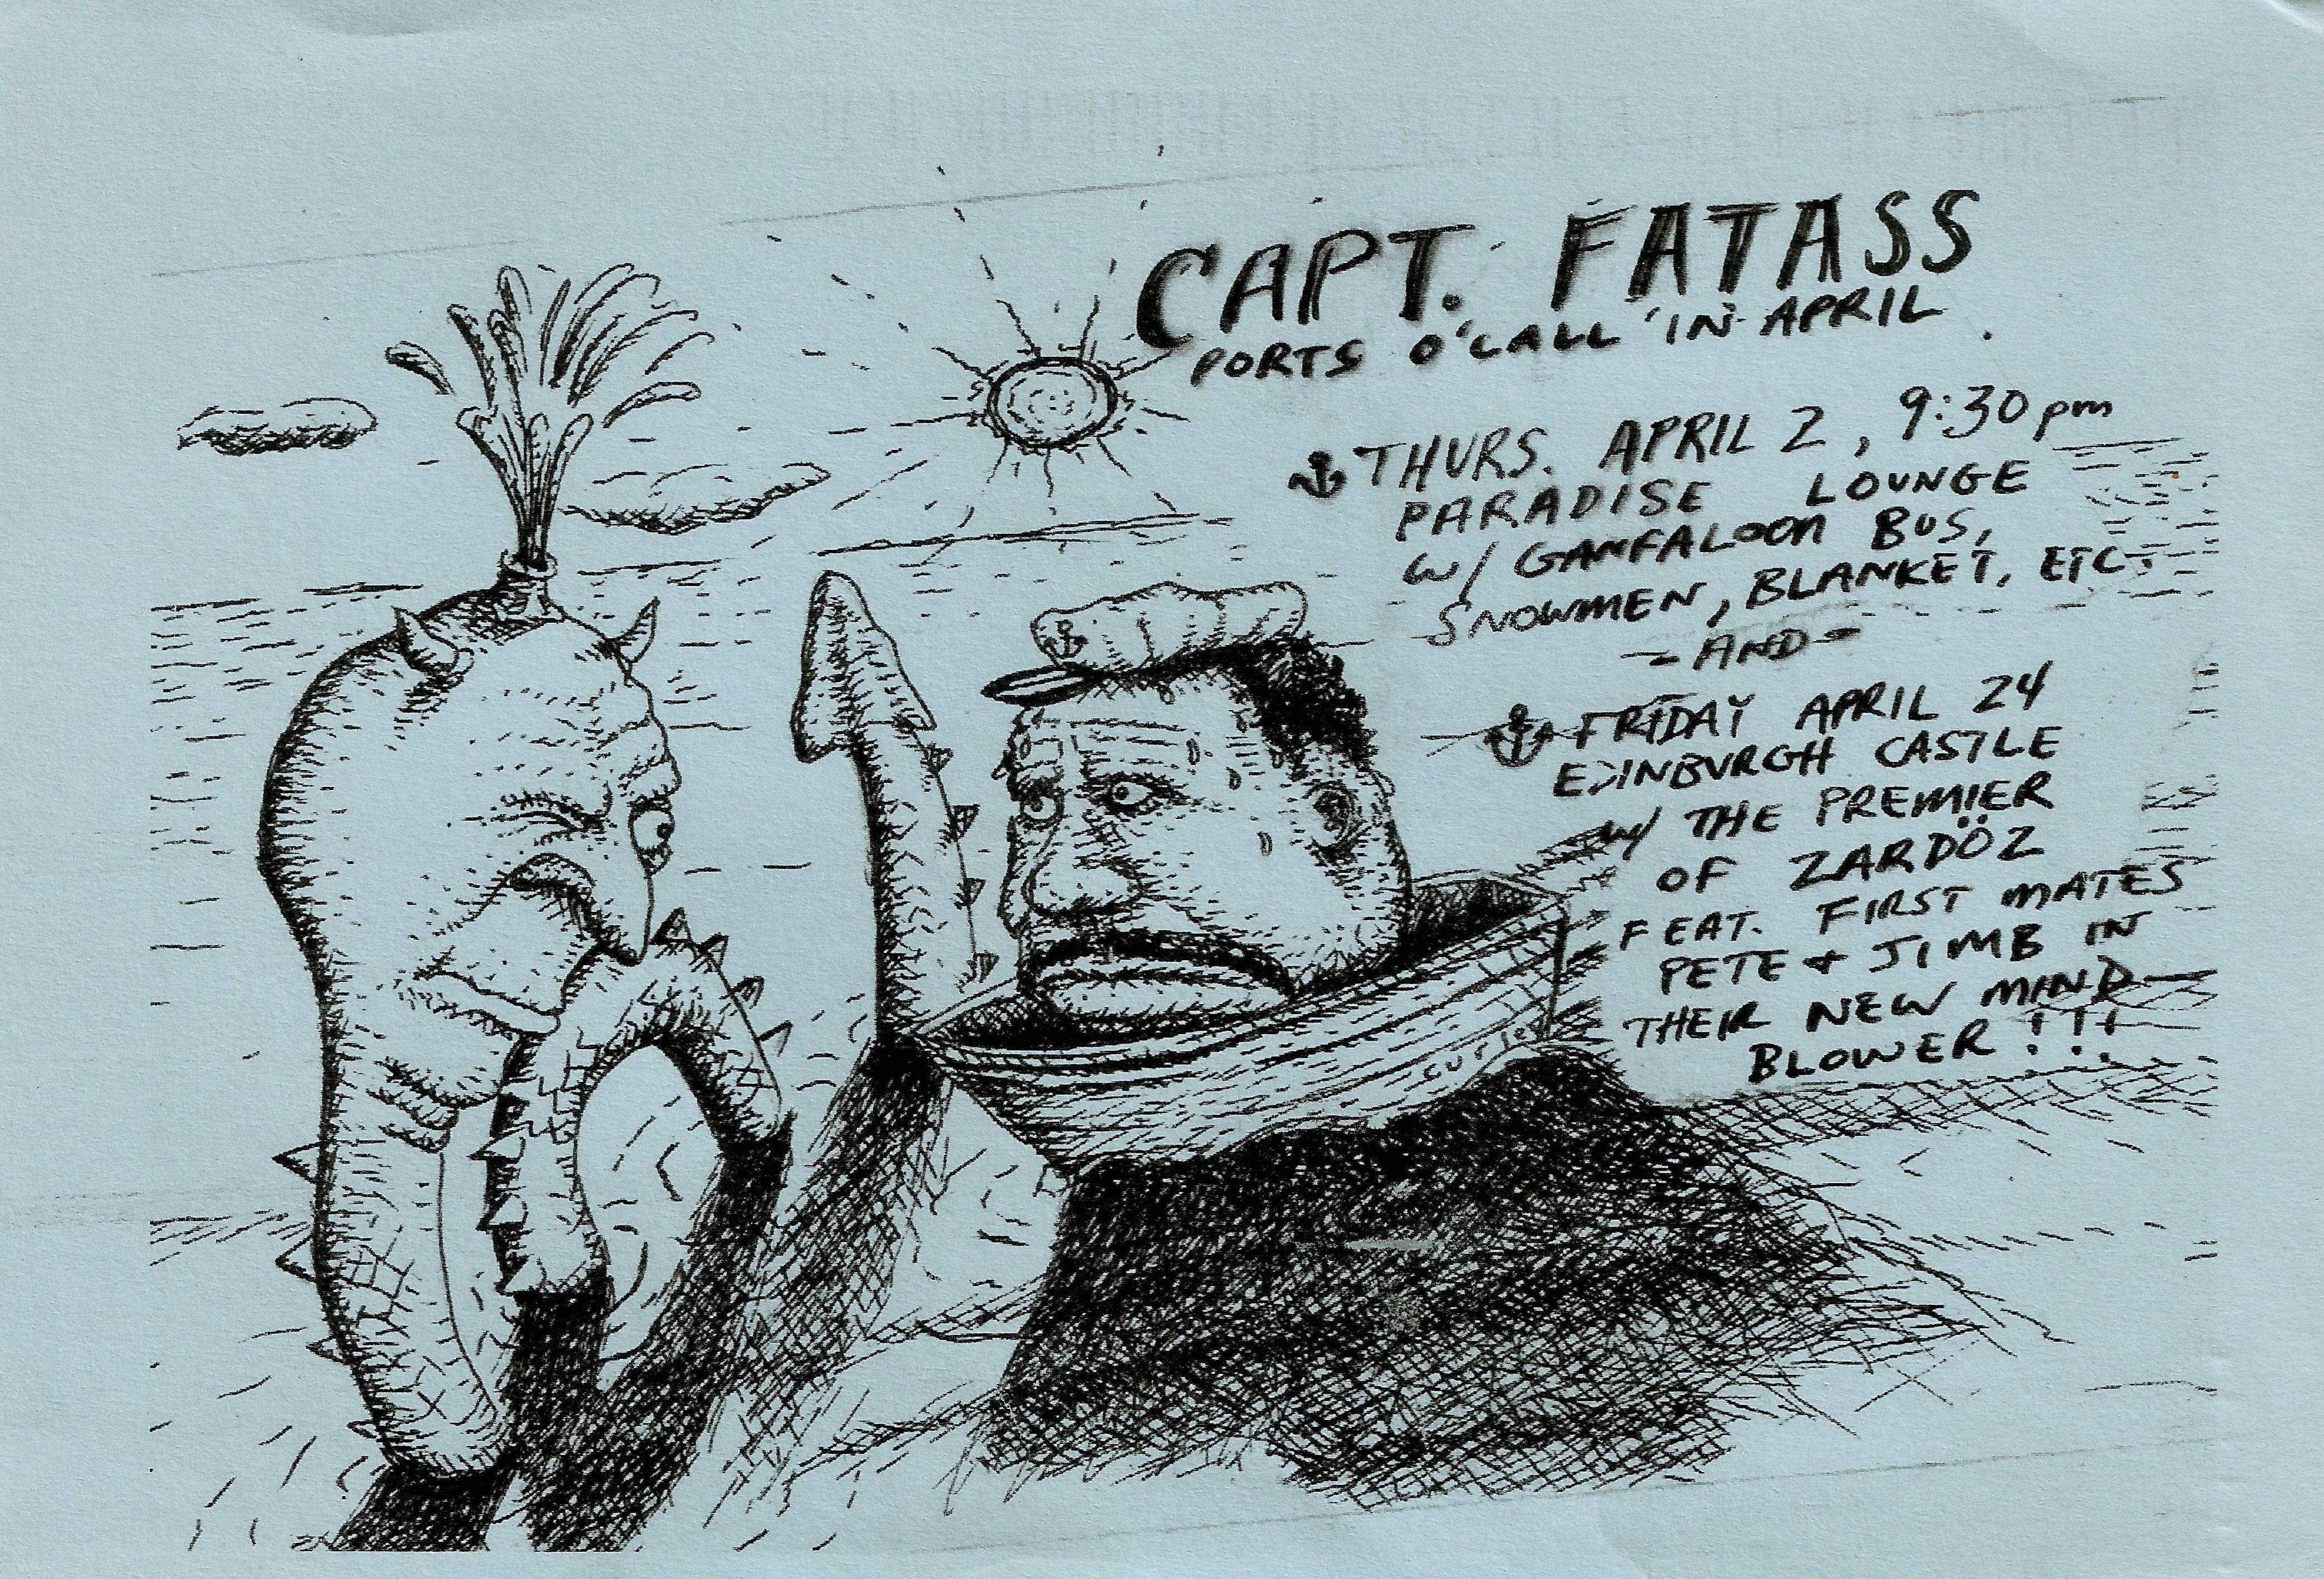 CAPT. FATASS
PORTS O'CALL IN APRIL
THURS. APRIL 2, 9:30 pm
PARADISE LOUNGE
W/ GANFALOON BUS,
SNOWMEN, BLANKET, ETC.
- AND -
FRIDAY APRIL 24
EDINBURGH CASTLE
W/ THE PREMIER
OF ZARDÖZ
FEAT. FIRST MATES
PETE + JIMB IN
THEIR NEW MIND-
BLOWER!!!